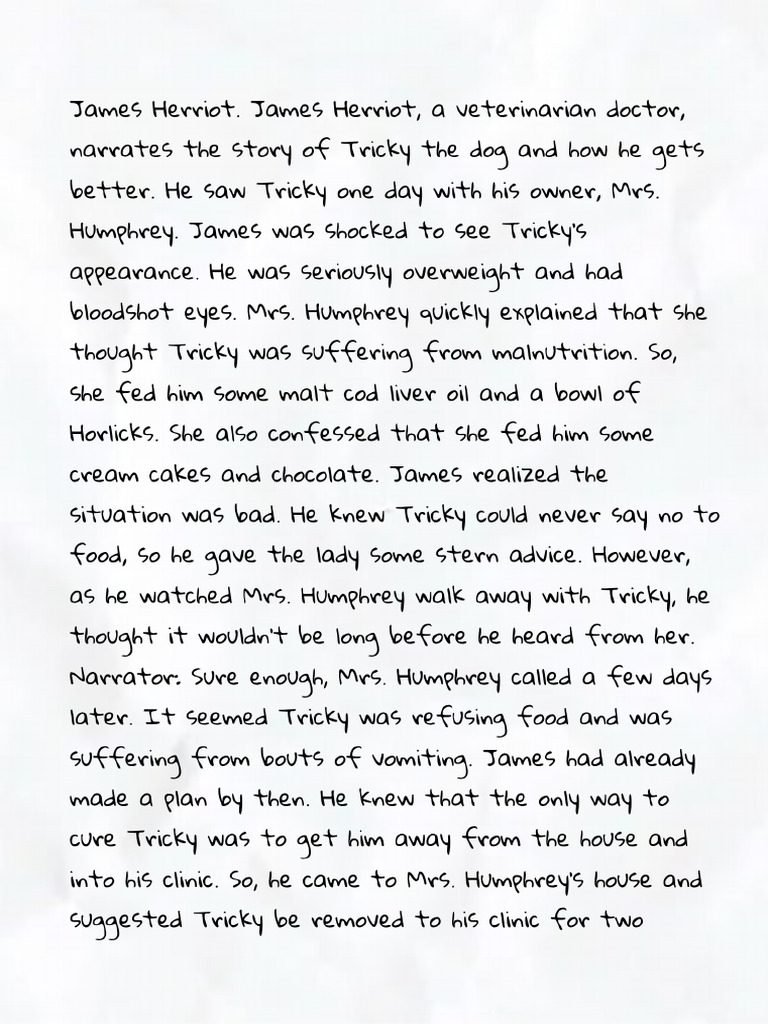 James Herriot. James Herriot, a veterinarian doctor,
narrates the story of Tricky the dog and how he gets
better. He saw Tricky one day with his owner, Mrs.
Humphrey. James was shocked to see Tricky's
appearance. He was seriously overweight and had
bloodshot eyes. Mrs. Humphrey quickly explained that she
thought Tricky was suffering from malnutrition. So,
she fed him some malt cod liver oil and a bowl of
Horlicks. She also confessed that she fed him some
cream cakes and chocolate. James realized the
situation was bad. He knew Tricky could never say no to
food, so he gave the lady some stern advice. However,
as he watched Mrs. Humphrey walk away with Tricky, he
thought it wouldn't be long before he heard from her.
Narrator: Sure enough, Mrs. Humphrey called a few days
later. It seemed Tricky was refusing food and was
suffering from bouts of vomiting. James had already
made a plan by then. He knew that the only way to
cure Tricky was to get him away from the house and
into his clinic. So, he came to Mrs. Humphrey's house and
suggested Tricky be removed to his clinic for two